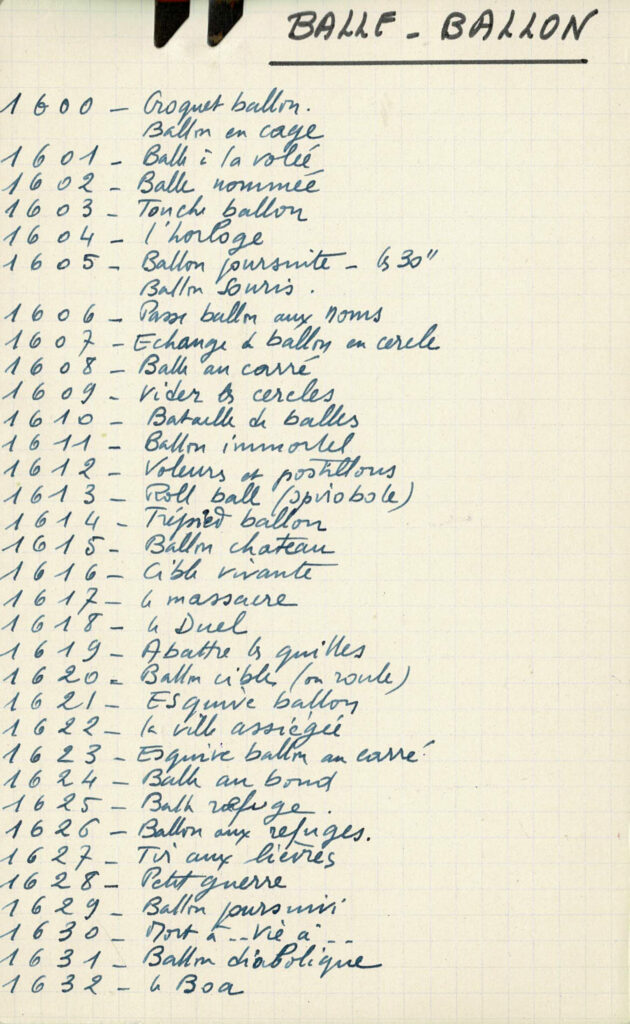 BALLE - BALLON
1600 - Croquet ballon.
Ballon en cage
1601 - Balle à la volée
1602 - Balle nommée
1603 - Touche ballon
1604 - l'horloge
1605 - Ballon poursuite - les 30"
Ballon souris.
1606 - Passe ballon aux noms
1607 - Echange de ballon en cercle
1608 - Balle au carré
1609 - Vider les cercles
1610 - Bataille de balles
1611 - Ballon immortel
1612 - Voleurs et postillons
1613 - Roll ball (spirobole)
1614 - Trépied ballon
1615 - Ballon chateau
1616 - Cible vivante
1617 - le massacre
1618 - le Duel
1619 - Abattre les quilles
1620 - Ballon cibles (on roule)
1621 - Esquive ballon
1622 - la ville assiégée
1623 - Esquive ballon au carré
1624 - Balle au bond
1625 - Balle refuge.
1626 - Ballon aux refuges.
1627 - Tir aux lièvres
1628 - Petit guerre
1629 - Ballon poursuivi
1630 - Mort à .. vie à ..
1631 - Ballon diabolique
1632 - le Boa